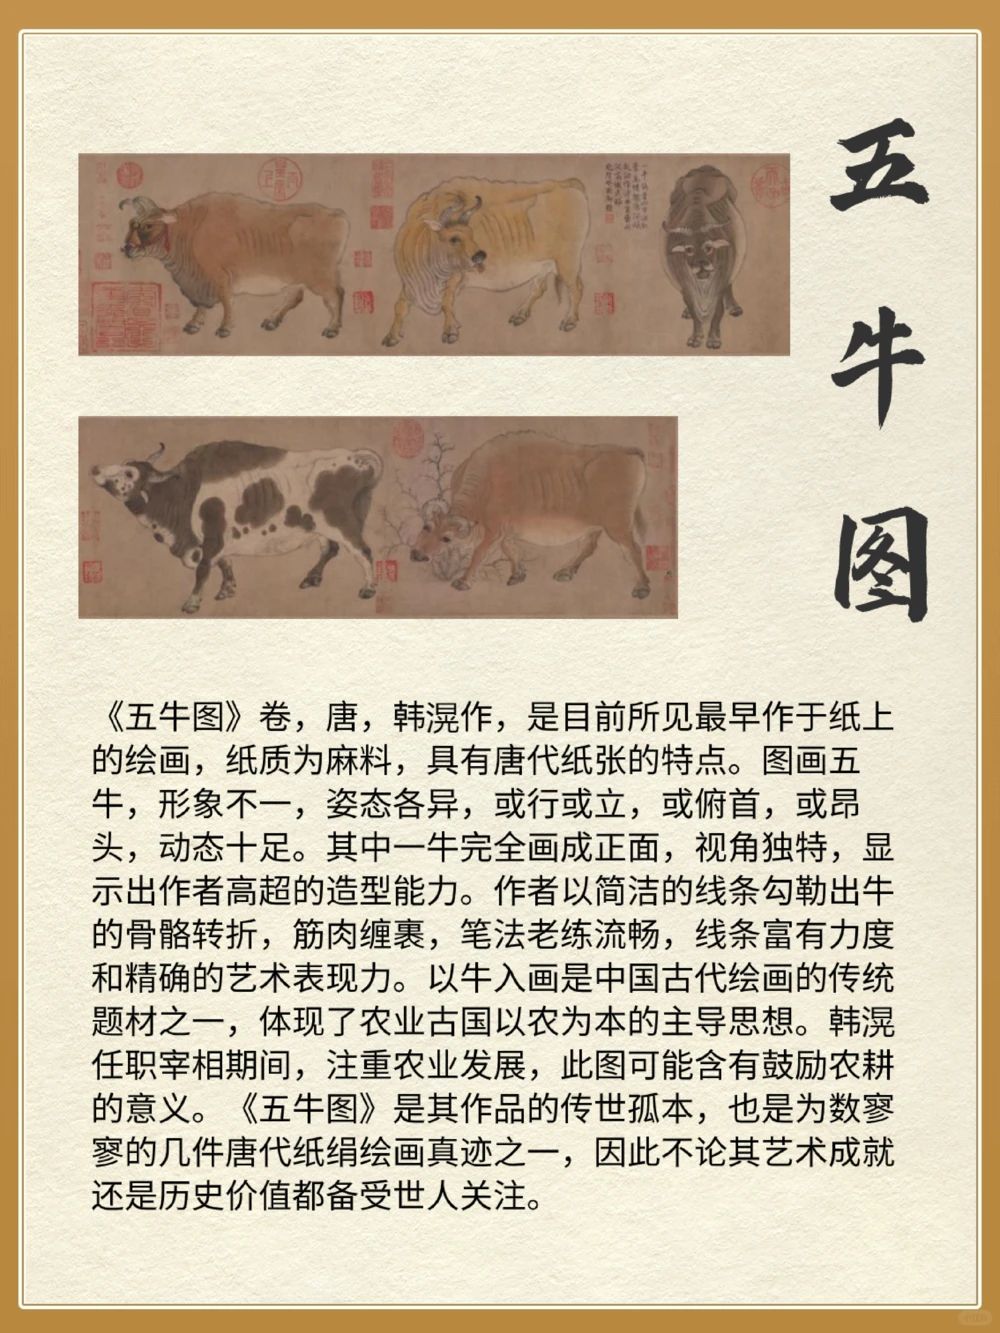 五牛图
《五牛图》卷，唐，韩滉作，是目前所见最早作于纸上
的绘画，纸质为麻料，具有唐代纸张的特点。图画五
牛，形象不一，姿态各异，或行或立，或俯首，或昂
头，动态十足。其中一牛完全画成正面，视角独特，显
示出作者高超的造型能力。作者以简洁的线条勾勒出牛
的骨骼转折，筋肉缠裹，笔法老练流畅，线条富有力度
和精确的艺术表现力。以牛入画是中国古代绘画的传统
题材之一，体现了农业古国以农为本的主导思想。韩滉
任职宰相期间，注重农业发展，此图可能含有鼓励农耕
的意义。《五牛图》是其作品的传世孤本，也是为数寥
寥的几件唐代纸绢绘画真迹之一，因此不论其艺术成就
还是历史价值都备受世人关注。